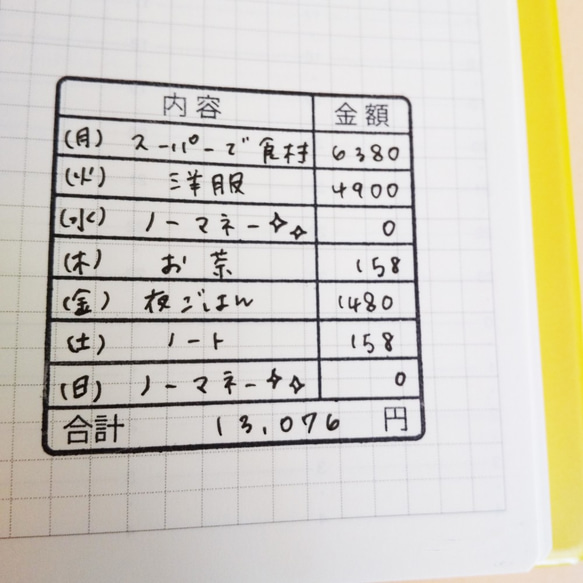 内容 金額
(月) スーパーで食材 6380
(火) 洋服 4900
(水) ノーマネー✧✧ 0
(木) お茶 158
(金) 夜ごはん 1480
(土) ノート 158
(日) ノーマネー✧✧ 0
合計 13,076 円